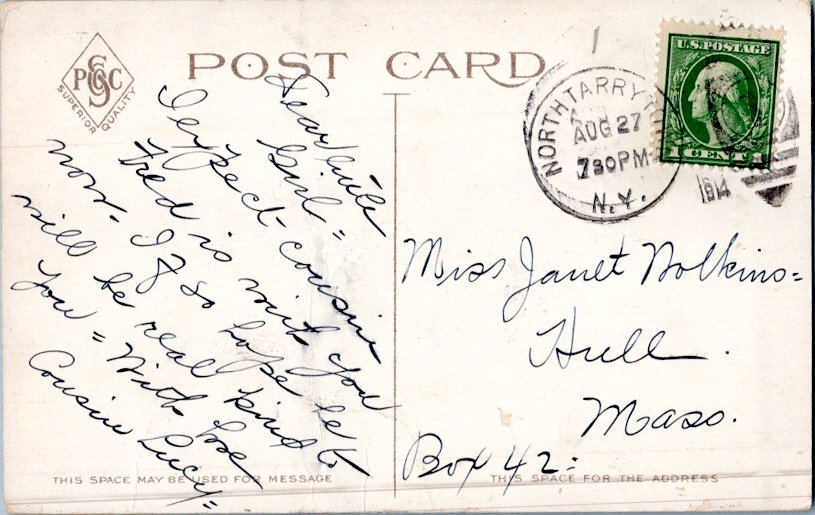 POST CARD
PCSCO
SUPERIOR QUALITY
U.S. POSTAGE
1 CENT
NORTH TARRYTOWN
AUG 27
7 30 PM
N.Y.
1914
Dear little
Girl =
I expect cousin
Fred is with you
now. I so hope he
will be real kind to
you = With love
Cousin Lucy =
Miss Janet Wolkins =
Hull.
Mass.
Box 42 =
THIS SPACE MAY BE USED FOR MESSAGE
THIS SPACE FOR THE ADDRESS